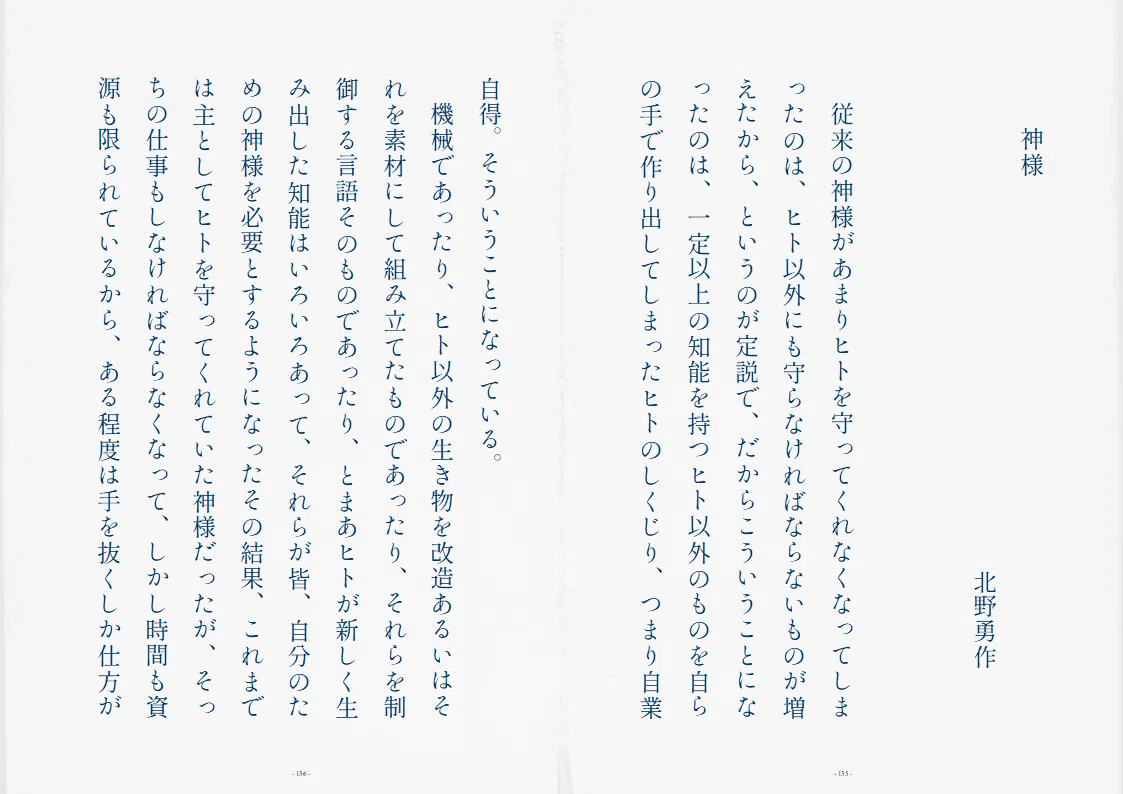 神様
北野勇作
従来の神様があまりヒトを守ってくれなくなってしま
ったのは、ヒト以外にも守らなければならないものが増
えたから、というのが定説で、だからこういうことにな
ったのは、一定以上の知能を持つヒト以外のものを自ら
の手で作り出してしまったヒトのしくじり、つまり自業
- 135 -
自得。そういうことになっている。
機械であったり、ヒト以外の生き物を改造あるいはそ
れを素材にして組み立てたものであったり、それらを制
御する言語そのものであったり、とまあヒトが新しく生
み出した知能はいろいろあって、それらが皆、自分のた
めの神様を必要とするようになったその結果、これまで
は主としてヒトを守ってくれていた神様だったが、そっ
ちの仕事もしなければならなくなって、しかし時間も資
源も限られているから、ある程度は手を抜くしか仕方が
- 136 -